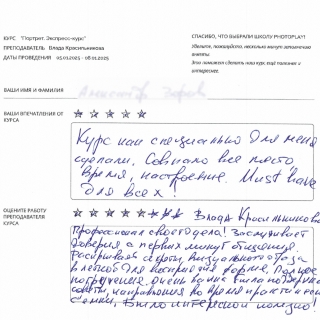 КУРС "Портрет. Экспресс-курс"
ПРЕПОДАВАТЕЛЬ Влада Красильникова
ДАТЫ ПРОВЕДЕНИЯ 05.01.2025 - 08.01.2025
СПАСИБО, ЧТО ВЫБРАЛИ ШКОЛУ PHOTOPLAY!
Уделите, пожалуйста, несколько минут заполнению анкеты.
Это поможет сделать наш курс ещё полезнее и интереснее.
ВАШИ ИМЯ И ФАМИЛИЯ:
Александр
ВАШИ ВПЕЧАТЛЕНИЯ ОТ КУРСА
Курс как специально для меня
сделали. Совпало все место
время, настроение. Must have
для всех!
ОЦЕНИТЕ РАБОТУ ПРЕПОДАВАТЕЛЯ КУРСА
Влада Красильникова
Профессионал своего дела! Заслуживает
доверия с первых минут общения.
Раскрывает секреты визуального
в легкой для восприятия форме. Полное
погружение, очень важные
советы, направления во время практической
съемки, Было интересно и полезно!